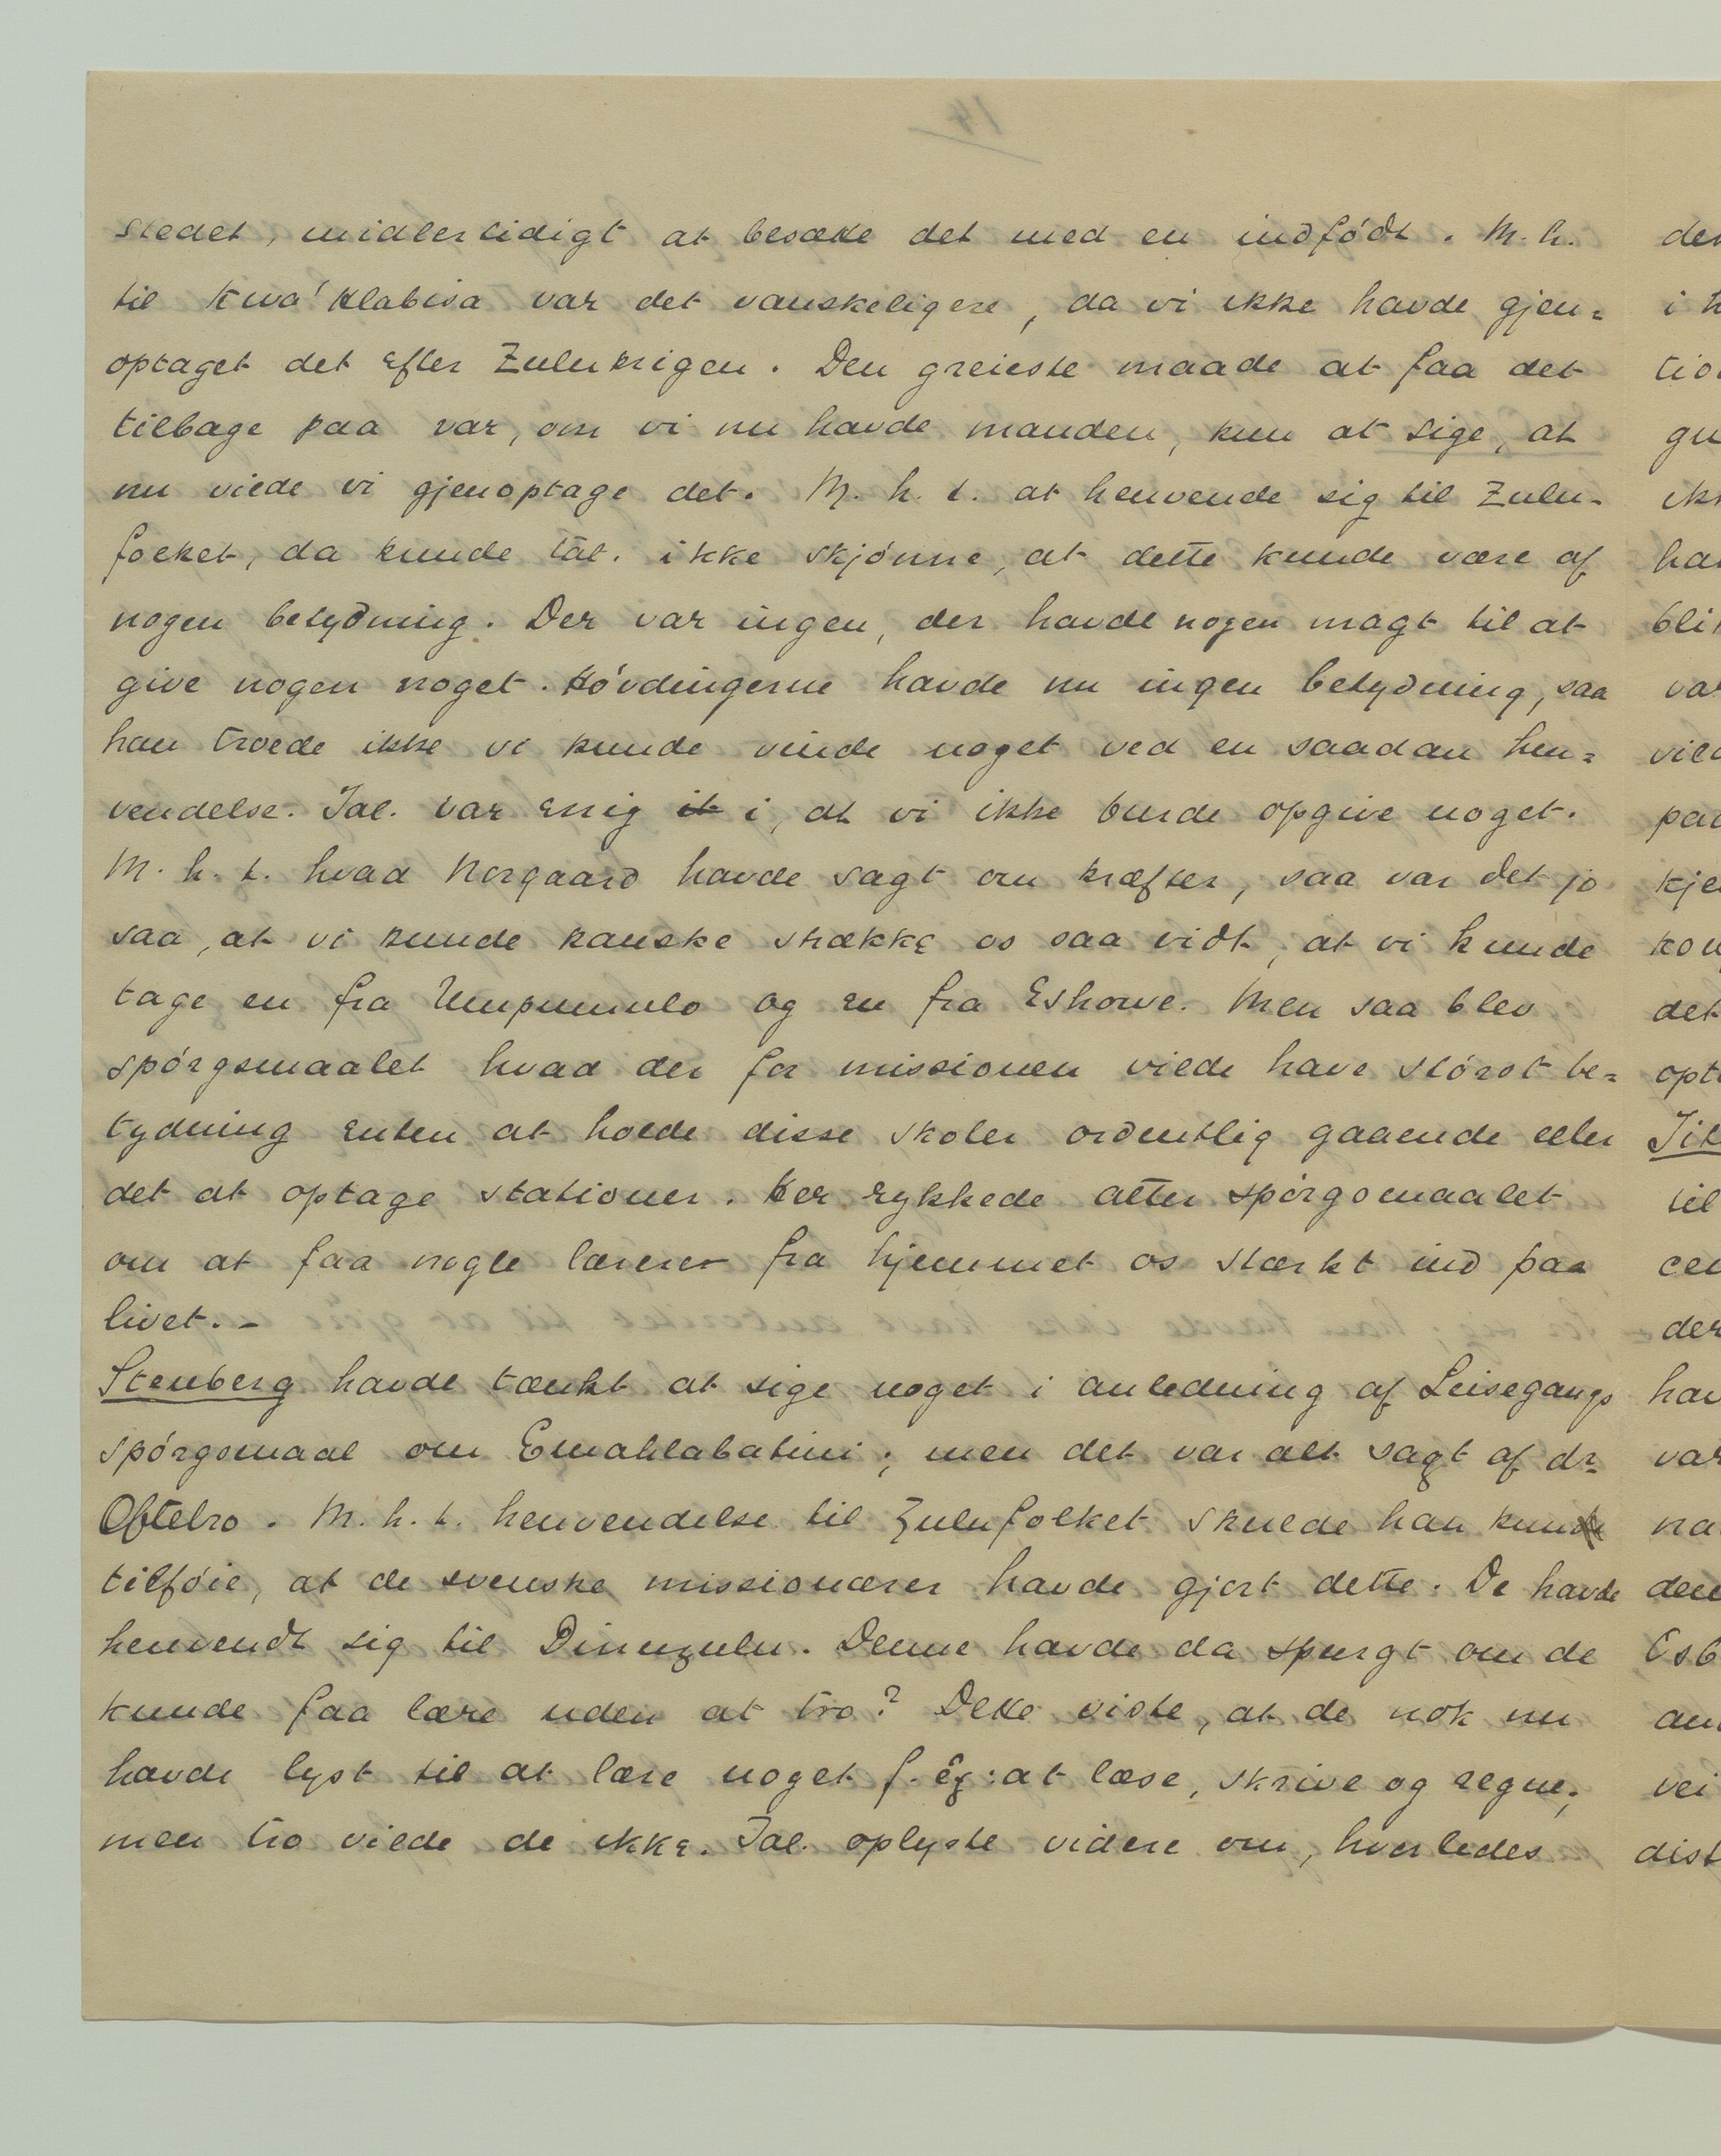 stedet, midlertidigt at besætte det med en indfödt. M. h.
til Kwa'Hlabisa var det vanskeligere, da vi ikke havde gjen=
optaget det efter Zulukrigen. Den greieste maade at faa det
tilbage paa var, om vi nu havde manden, kun at sige, at
nu vilde vi gjenoptage det. M. h. t. at henvende sig til Zulu-
folket, da kunde tal. ikke skjönne, at dette kunde være af
nogen betydning. Der var ingen, der havde nogen magt til at
give nogen noget. Hövdingerne havde nu ingen betydning, saa
han troede ikke vi kunde vinde noget ved en saadan hen=
vendelse. Tal. var enig it i, at vi ikke burde opgive noget.
M. h. t. hvad Norgaard havde sagt om kræfter, saa var det jo
saa, at vi kunde kanske strække os saa vidt, at vi kunde
tage en fra Umpumulo og en fra Eshowe. Men saa blev
spörgsmaalet hvad der for missionen vilde have störst be=
tydning enten at holde disse skoler ordentlig gaaende eller
det at optage stationer. Her rykkede atter spörgsmaalet
om at faa nogle lærerer fra hjemmet os stærkt ind paa
livet.-
Stenberg havde tænkt at sige noget i anledning af Leisegangs
spörgsmaal om Emahlabatini; men det var alt sagt af dr
Oftebro. M. h. t. henvendelse til Zulufolket skulde han kun
tilföie, at de svenske missionærer havde gjort dette. De havde
henvendt sig til Dinuzulu. Denne havde da spurgt om de
kunde faa lære uden at tro? Dette viste, at de nok nu
havde lyst til at lære noget f. ex: at læse, skrive og regne;
men tro vilde de ikke. Tal. oplyste videre om, hvorledes